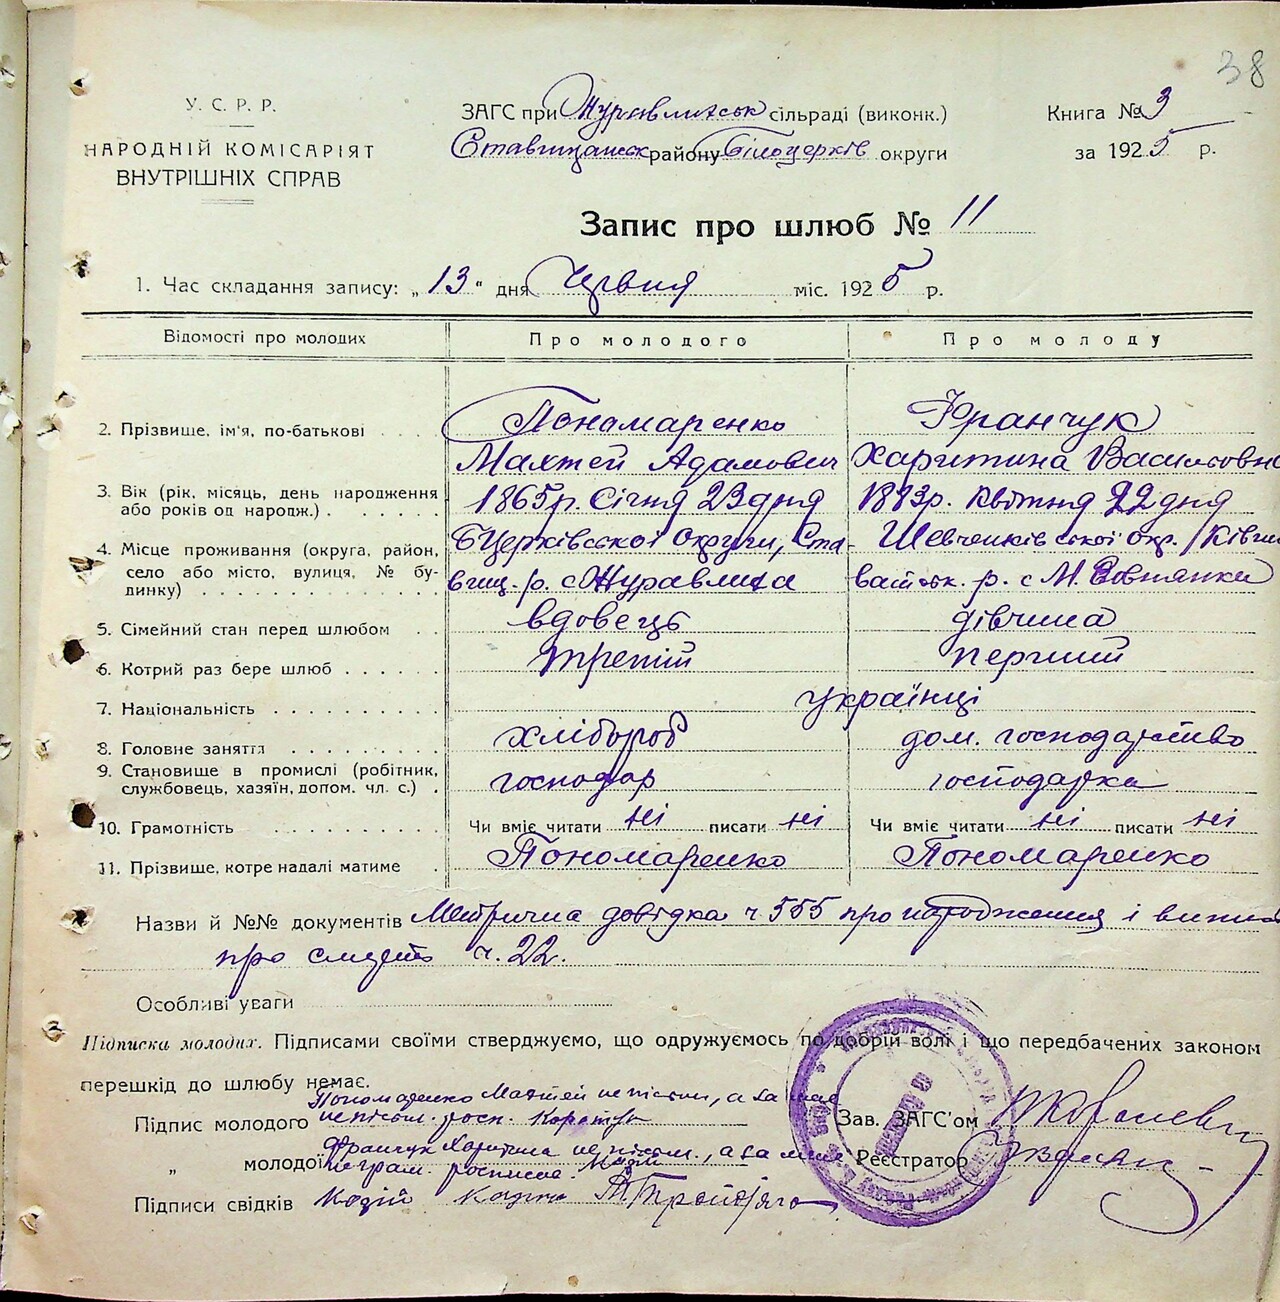 38
У. С. Р. Р.
НАРОДНІЙ КОМІСАРІЯТ
ВНУТРІШНІХ СПРАВ
ЗАГС при Журавлиськ сільраді (виконк.)
Ставищанськ району Білоцерків округи
Книга № 3
за 1925 р.
Запис про шлюб № 11
1. Час складання запису: „13“ дня Червня міс. 1925 р.
Відомості про молодих Про молодого Про молоду
2. Прізвище, ім'я, по-батькові Пономаренко Франчук
Махтей Адамович Харитина Василовно
3. Вік (рік, місяць, день народження або років од народж.) 1865р. Січня 23 дня 1883р. Квітня 22 дня
4. Місце проживання (округа, район, село або місто, вулиця, № будинку) БЦерківської округи, Ста- Шевченківської окр.
вищ. р. с Журавлиха р. с М.
5. Сімейний стан перед шлюбом вдовець дівчина
6. Котрий раз бере шлюб третій перший
7. Національність українці
8. Головне заняття хлібороб дом. господарство
9. Становище в промислі (робітник, службовець, хазяїн, допом. чл. с.) господар господарка
10. Грамотність Чи вміє читати ні писати ні Чи вміє читати ні писати ні
11. Прізвище, котре надалі матиме Пономаренко Пономаренко
Назви й №№ документів Метрична довідка ч 555 про народження і
про смерть ч. 22.
Особливі уваги
Підписка молодих. Підписами своїми стверджуємо, що одружуємось по добрій волі і що передбачених законом
перешкід до шлюбу немає.
Підпис молодого Пономаренко Махтей неписьм, а за
неписьм. росп.
„ молодої Франчук Харитина неписьм., а за
неграм. росписався
Підписи свідків
Зав. ЗАГС'ом
Реєстратор